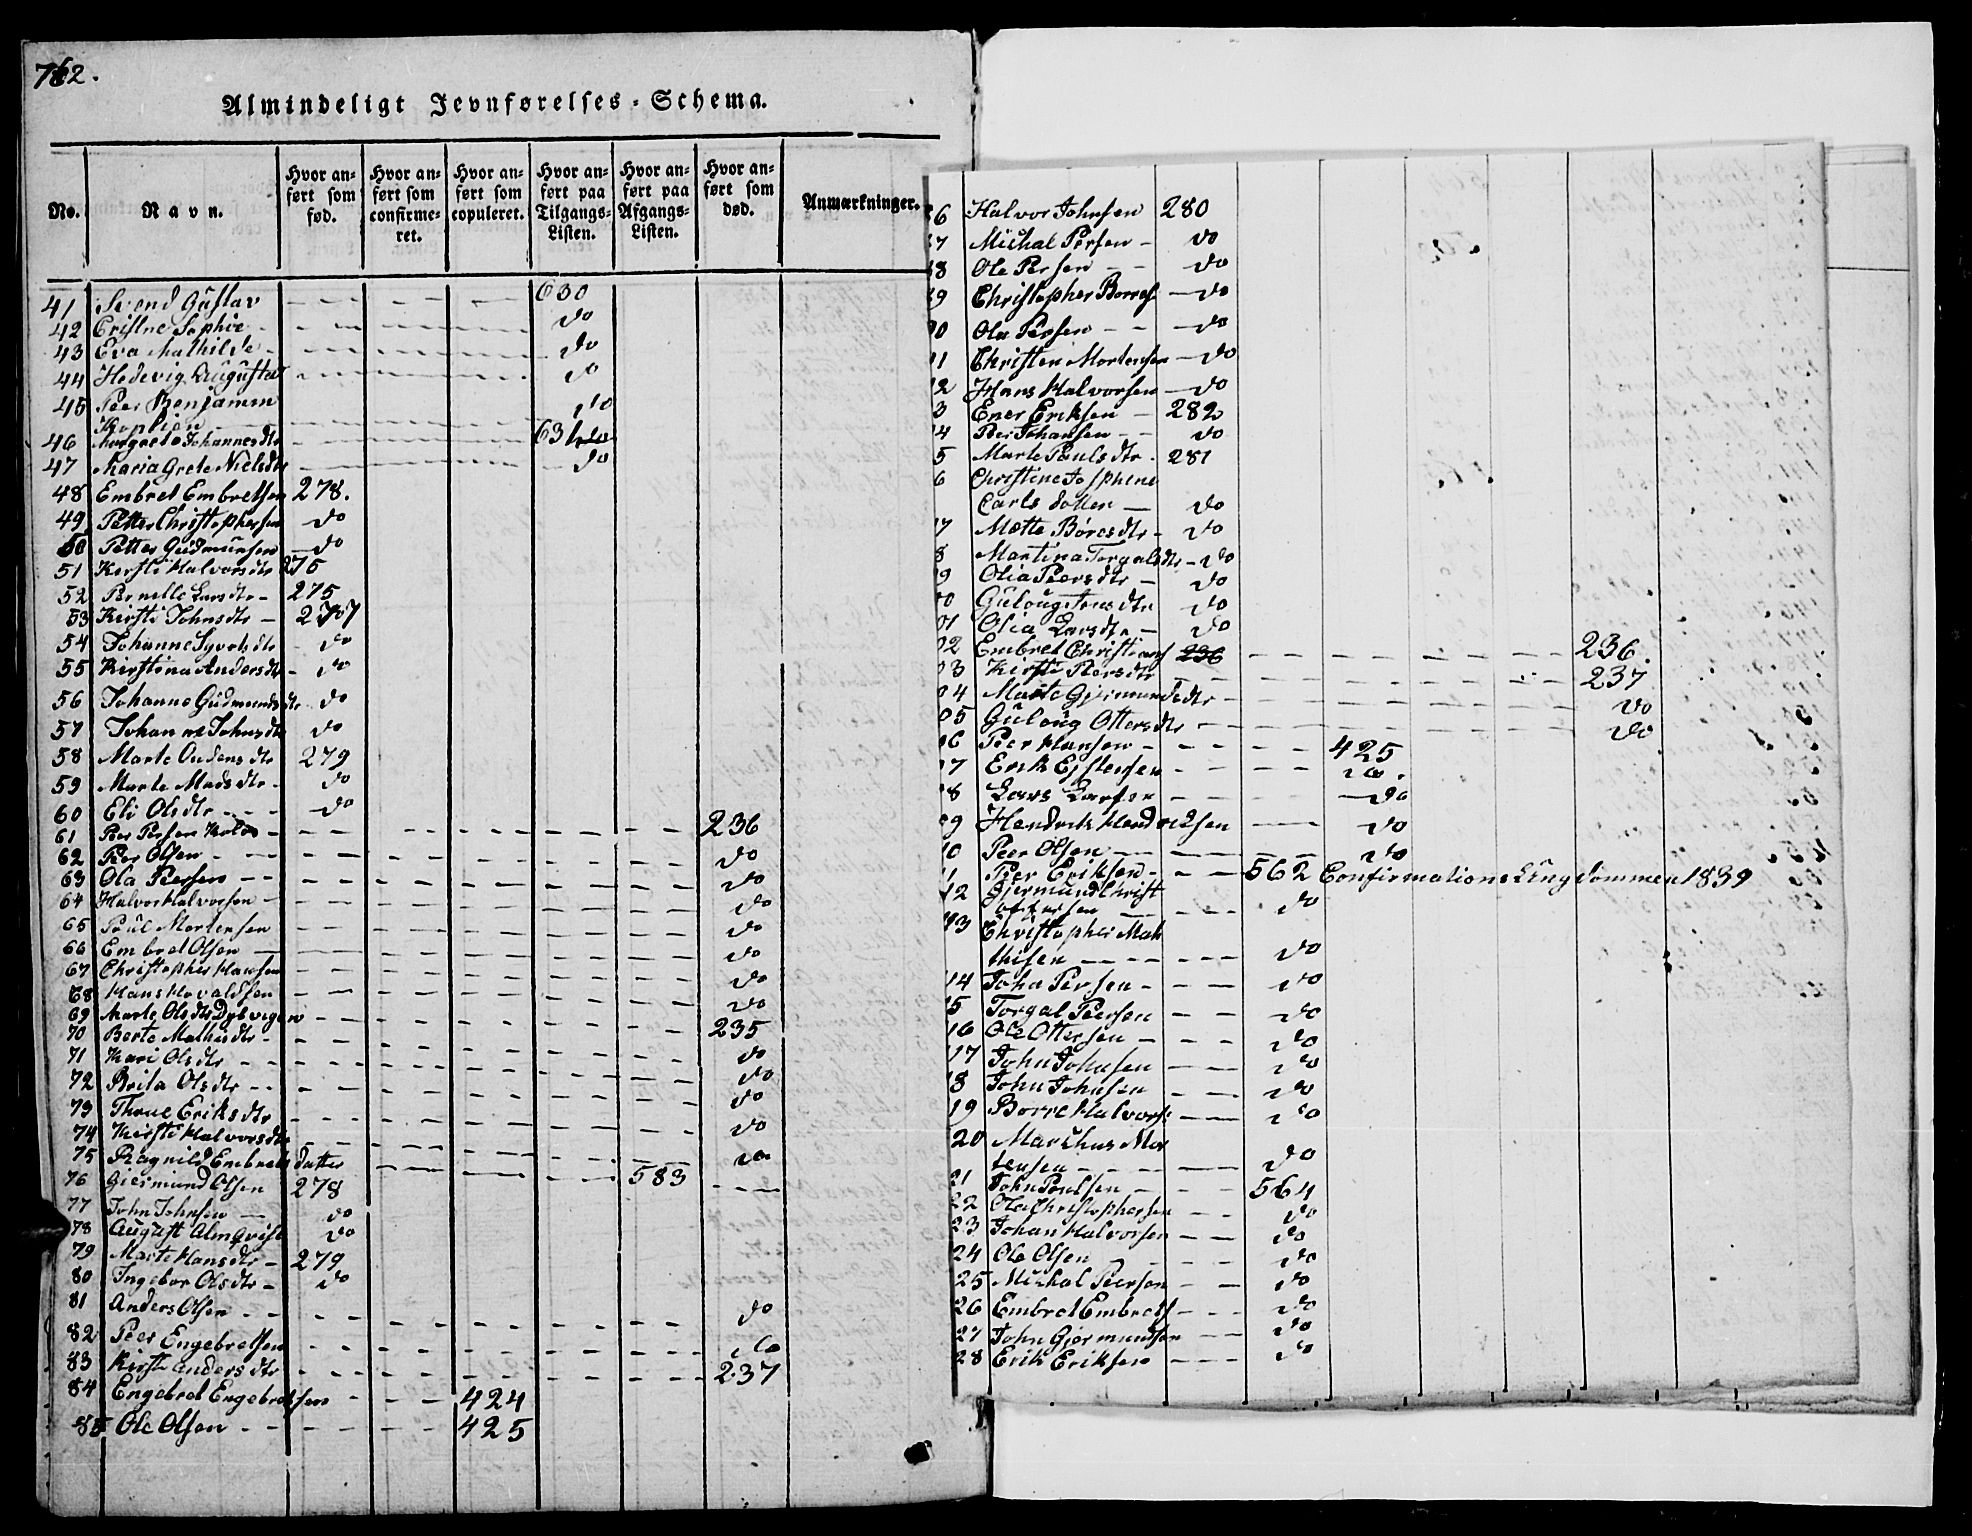 762.
Almindeligt Jevnførelses-Schema.
No. Navn. Hvor anført som fød. Hvor anført som confirmeret. Hvor anført som copuleret. Hvor anført paa Tilgangs-Listen. Hvor anført paa Afgangs-Listen. Hvor anført som død. Anmærkninger.
41 Svend Gustav - - - 630
42 Cristne Sophie - - - do
43 Eva Mathilde - - - do
44 Hedevig Augusta - - - do
45 Peer Benjamin - - - do
Koplien
46 Margrete Johannesdtr - - - 631
47 Maria Grete Nielsdtr - - - do
48 Embret Embretsen 278.
49 Petter Christophersen do
50 Petter Gudmunsen - do
51 Kirsti Halvorsdtr 275
52 Pernelle Larsdtr - 275
53 Kirsti Johnsdtr - 277
54 Johanne Syversdtr - do
55 Kirstina Andersdtr - do
56 Johanne Gudmundsdtr - do
57 Johanne Johnsdtr do
58 Marte Oudensdtr 279
59 Marte Madsdtr - do
60 Eli Olsdtr - - do
61 Peer Persen - - - 236
62 Peer Olsen - - - do
63 Ola Peersen - - - do
64 Halvor Halvorsen - - - do
65 Poul Mortensen - - - do
66 Embret Olsen - - - do
67 Christopher Hansen - - - do
68 Hans Hovaldsen - - - do
69 Marte Olsdtr Dybvigen - - - 235
70 Berte Mathisdtr - - - do
71 Kari Olsdtr - - - do
72 Brita Olsdtr - - - do
73 Thrue Eriksdtr - - - do
74 Kirsti Halvorsdtr - - - do
75 Ragnild Embretsdatter - - - 583 - - -
76 Giermund Olsen 278
77 John Johnsen - do
78 August Almqvist do
79 Marte Hansdtr - 279
80 Ingebor Olsdtr - do
81 Anders Olsen - - - do
82 Peer Engebretsen - - - do
83 Kirsti Andersdtr - - - 237
84 Engebret Engebretsen - - - 424
85 Ole Olsen - - - 425
86 Halvor Johnsen 280
87 Michal Persen - do
88 Ole Persen - - do
89 Christopher Borres - do
90 Ola Persen - - - do
91 Christen Mortensen - do
92 Hans Halvorsen - do
3 Ener Eriksen - 282
4 Peer Johansen - - do
5 Marte Paulsdtr. 281
6 Christine Josphine
Carls datter - do
97 Mette Böresdtr - do
8 Martina Torgalsdtr - do
99 Olia Peersdtr - do
00 Guloug Jensdtr do
01 Olia Larsdtr - do
02 Embret Christians 236 - - - 236.
03 Kirsti Peersdtr - - - 237
04 Marte Gjermundsdtr - - - do
05 Guloug Ottersdtr - - - do
06 Peer Hansen - - - 425
07 Erik Ejstensen - - - do.
08 Lars Larsen - - - do
09 Hendrik Hendriksen - - - do
10 Peer Olsen - - - do
11 Peer Eriksen - - - 562 Confirmations Ungdommen 1839
12 Gjermund Christ
offersen - - - do
13 Christopher Mat
thisen - - - do
14 John Persen - - - do
15 Torgal Peersen do
16 Ole Ottersen - - - do
17 John Johnsen - - - do
18 John Johnsen - - - do
19 Borre Halvors - - - do
20 Marchus Mor
tensen - - - do
21 John Poulsen - - - 564
22 Ole Christophersen - - do
23 Johan Halvorsen - - do
24 Ole Olsen - - - do
25 Michal Peersen - - do
26 Embret Embrets - - - do
27 John Gjermundsen - - do
28 Erik Eriksen - - - do